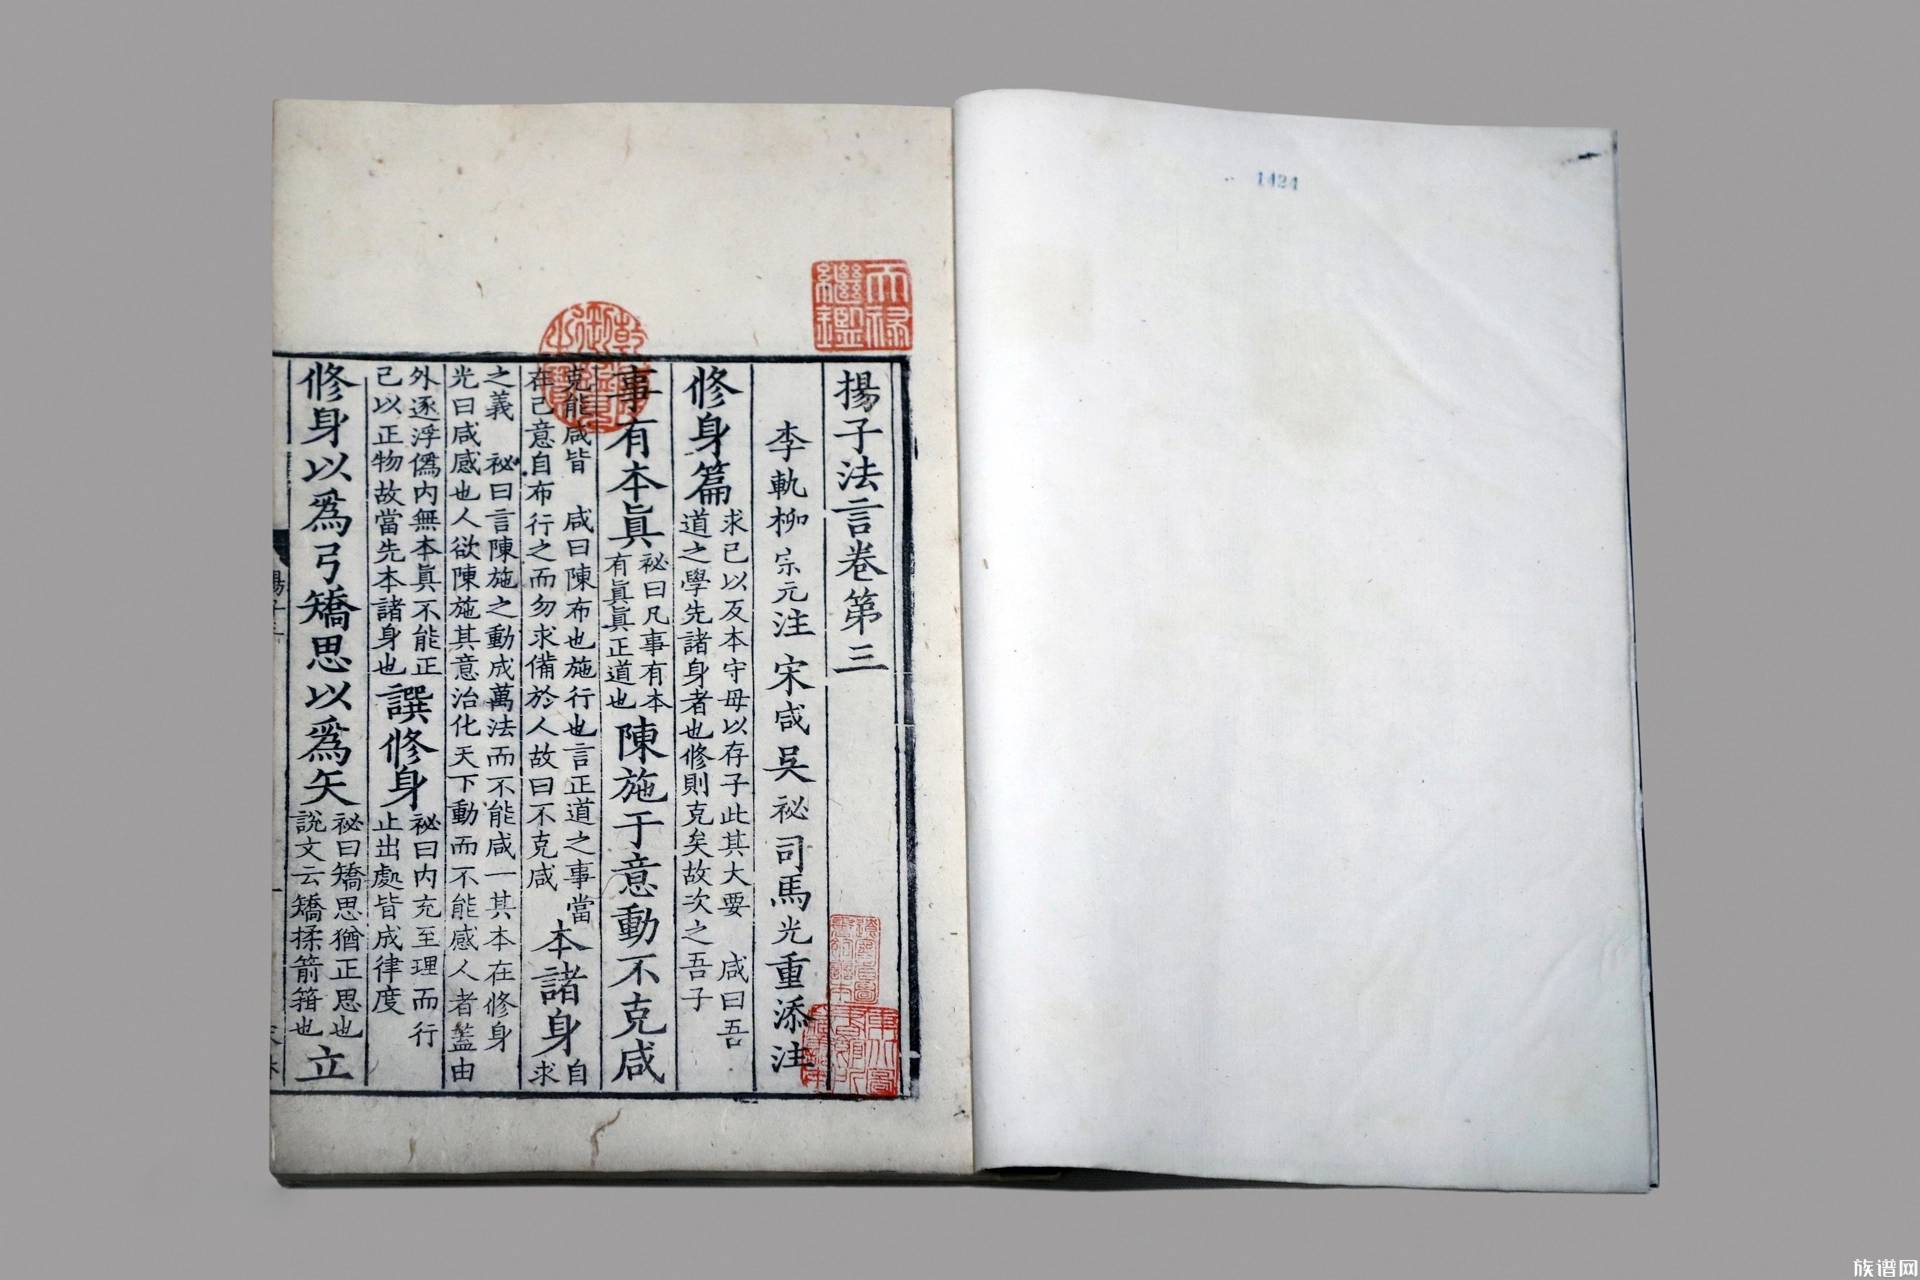 揚子法言卷第三
李軌柳宗元注 宋咸吳祕司馬光重添注
修身篇求己以反本守母以存子此其大要 咸曰吾道之學先諸身者也修則克矣故次之吾子
事有本眞祕曰凡事有本有眞眞正道也陳施于意動不克咸
克能咸皆 咸曰陳布也施行也言正道之事當在己意自布行之而勿求備於人故曰不克咸本諸身自求
之義 祕曰言陳施之動成萬法而不能咸一其本在修身光曰咸感也人欲陳施其意治化天下動而不能感人者蓋由
外逐浮僞内無本眞不能正己以正物故當先本諸身也譔修身祕曰内充至理而行止出處皆成律度
修身以爲弓矯思以爲矢祕曰矯思猶正思也說文云矯揉箭箝也立
天禄繼鑑
乾隆御覽之寶
1424
族谱网